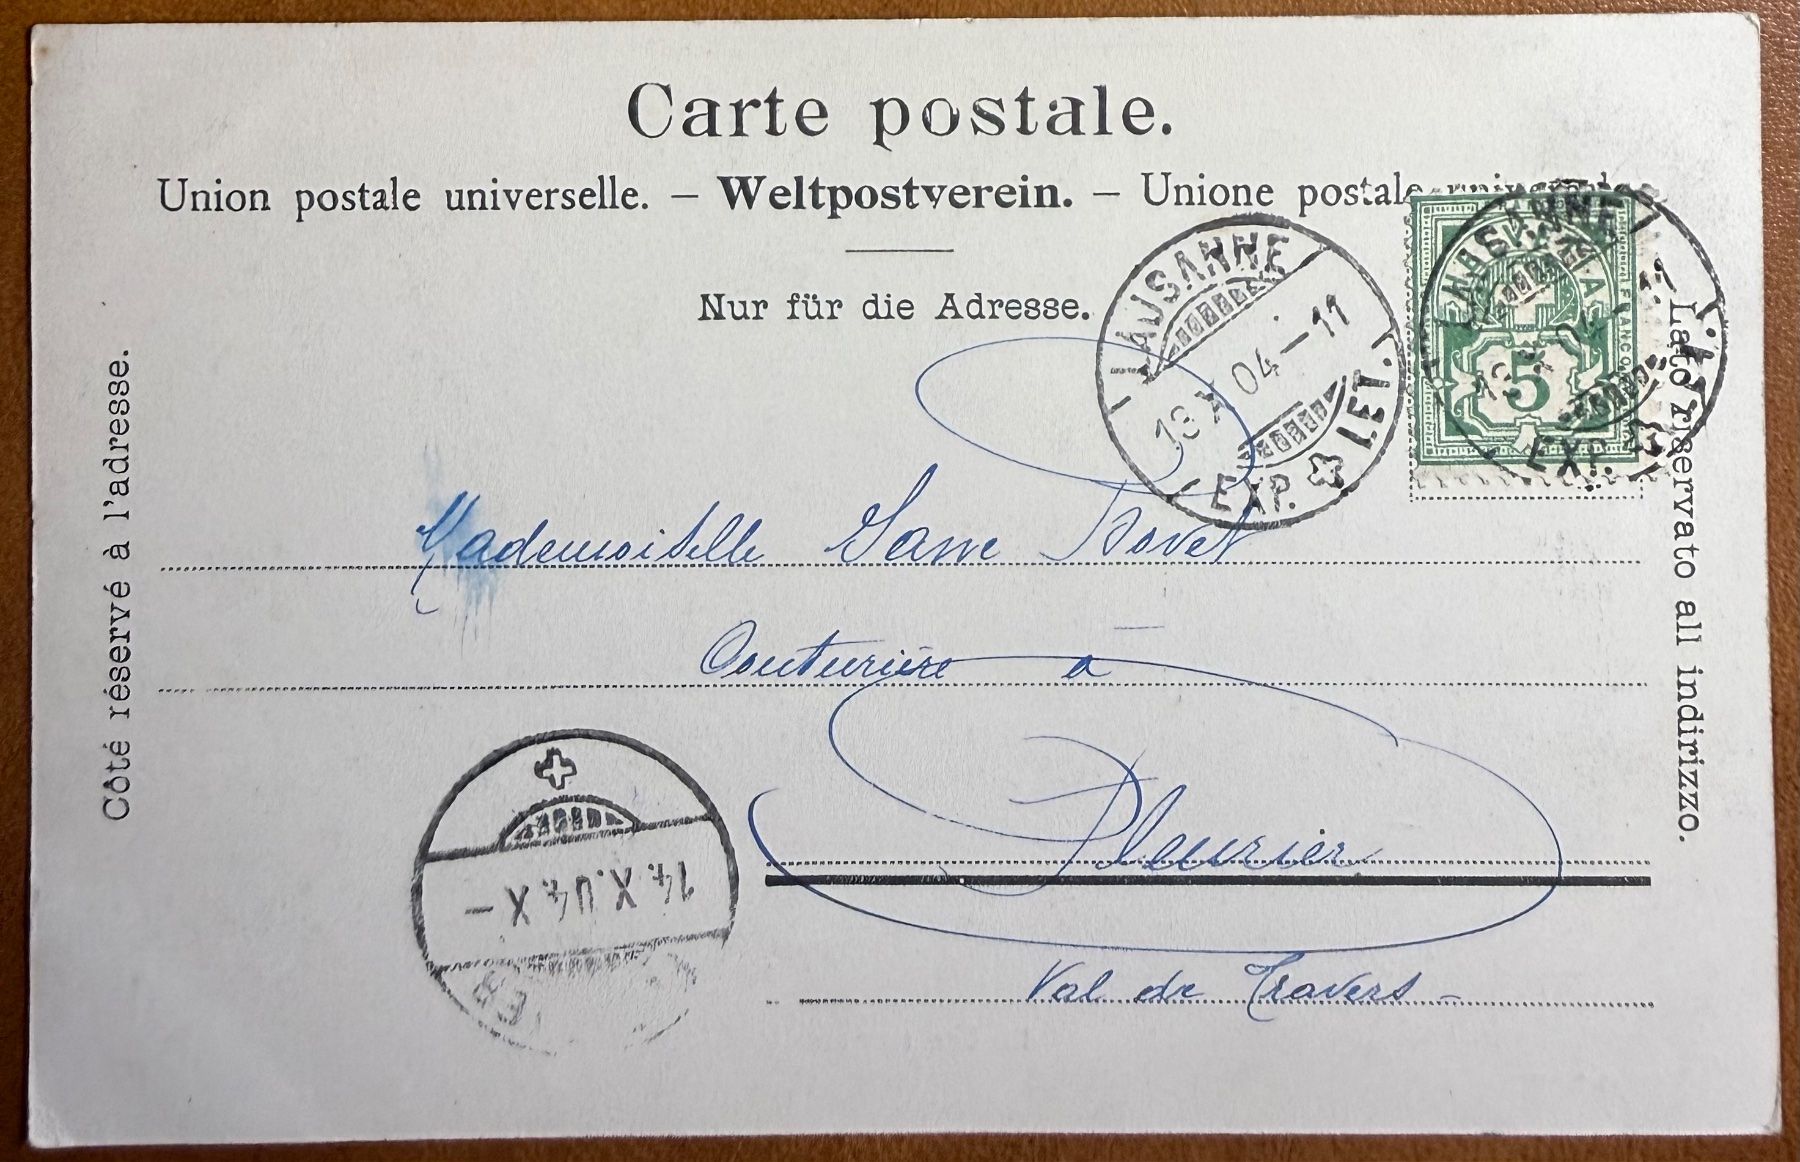 Carte postale.
Union postale universelle. – Weltpostverein. – Unione postale universale
Nur für die Adresse.
Côté réservé à l'adresse.
Lato riservato all indirizzo.
LAUSANNE
13 X 04 – 11
EXP. LET.
FRANCO
5
LAUSANNE
13 X 04 – 11
EXP. LET.
Mademoiselle
Couturière a
Fleurier
Val de Travers –
14.X.04.X –